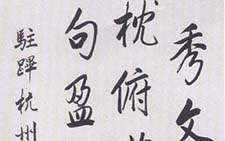 秀文
枕俯
句盈
駐蹕杭州